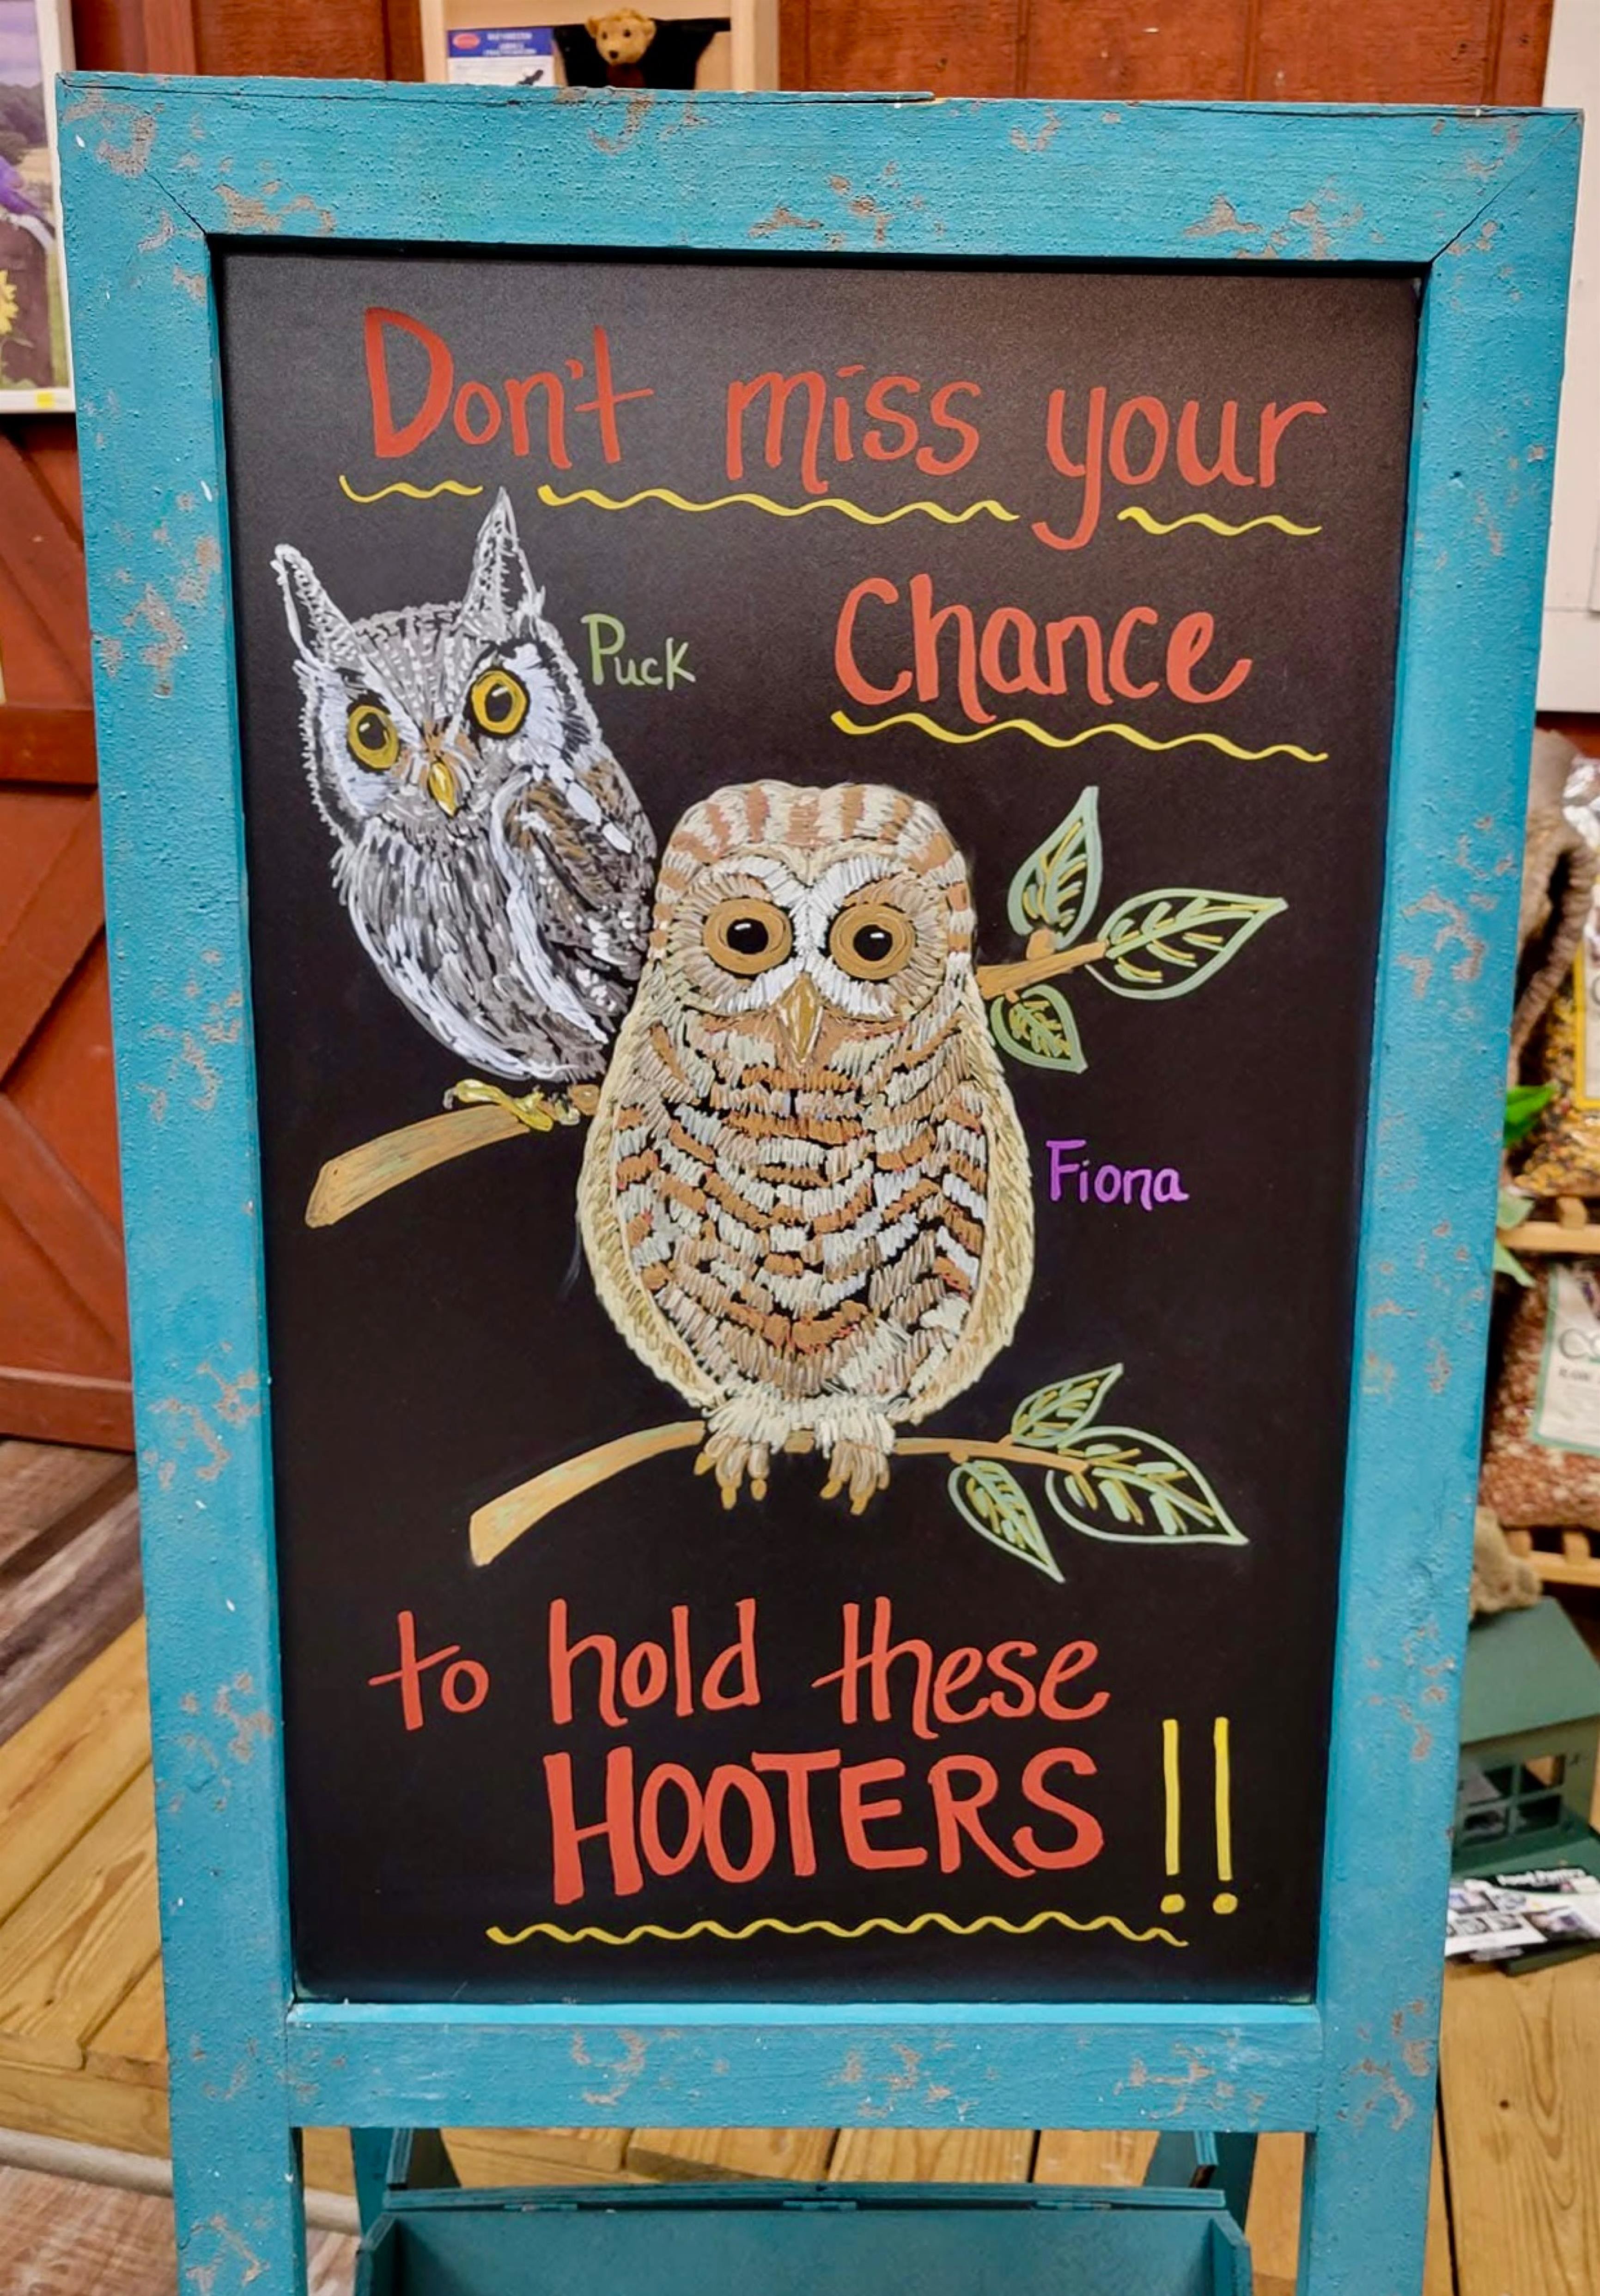 Don't miss your
Puck
Chance
Fiona
to hold these
HOOTERS!!